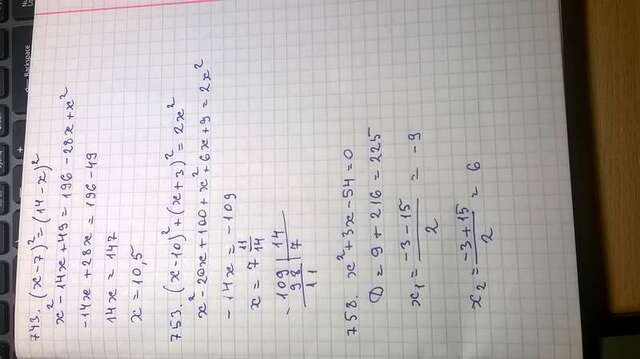 Backspace
743. (x-7)² = (14-x)²
x² - 14x + 49 = 196 - 28x + x²
-14x + 28x = 196 - 49
14x = 147
x = 10,5
753. (x-10)² + (x+3)² = 2x²
x² - 20x + 100 + x² + 6x + 9 = 2x²
- 14x = -109
x = 7 11/14
- 109 | 14
98 | 7
11
758. x² + 3x - 54 = 0
D = 9 + 216 = 225
x₁ = (-3 - 15)/2 = -9
x₂ = (-3 + 15)/2 = 6